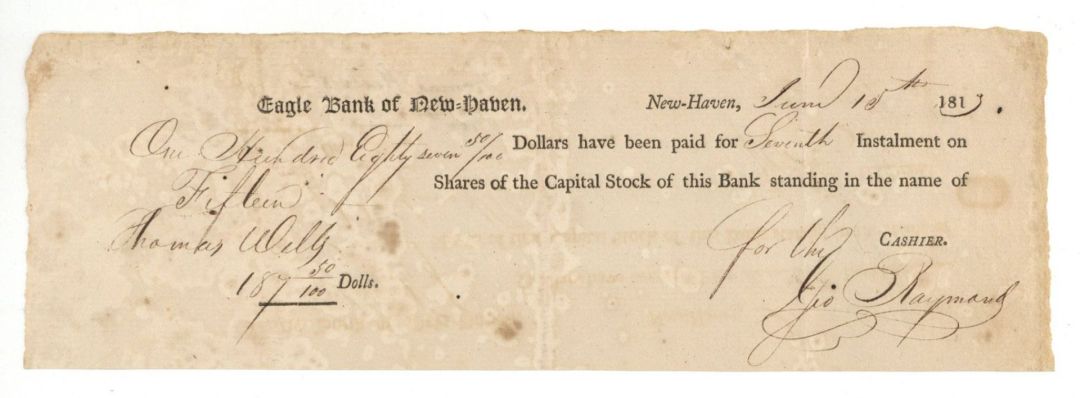 Eagle Bank of New-Haven. New-Haven, June 15th 1813.
One Hundred Eighty seven 50/100 Dollars have been paid for Seventh Instalment on
Fifteen Shares of the Capital Stock of this Bank standing in the name of
Thomas Wells for the CASHIER.
187 50/100 Dolls. Geo Raymond